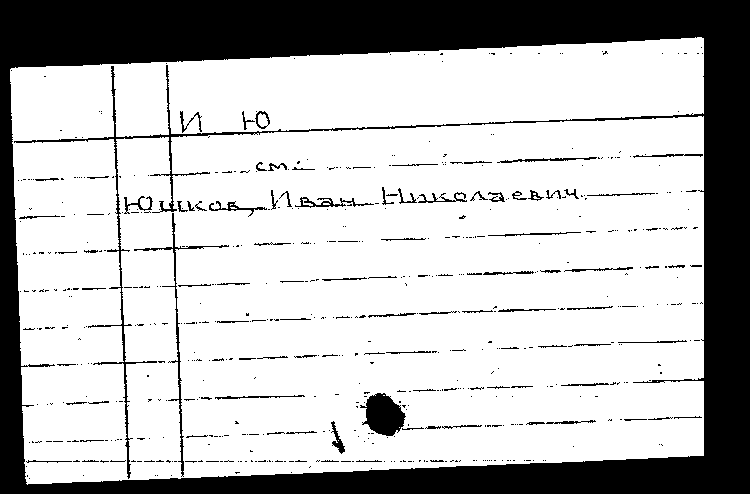 И Ю
см.:
Юшков, Иван Николаевич.